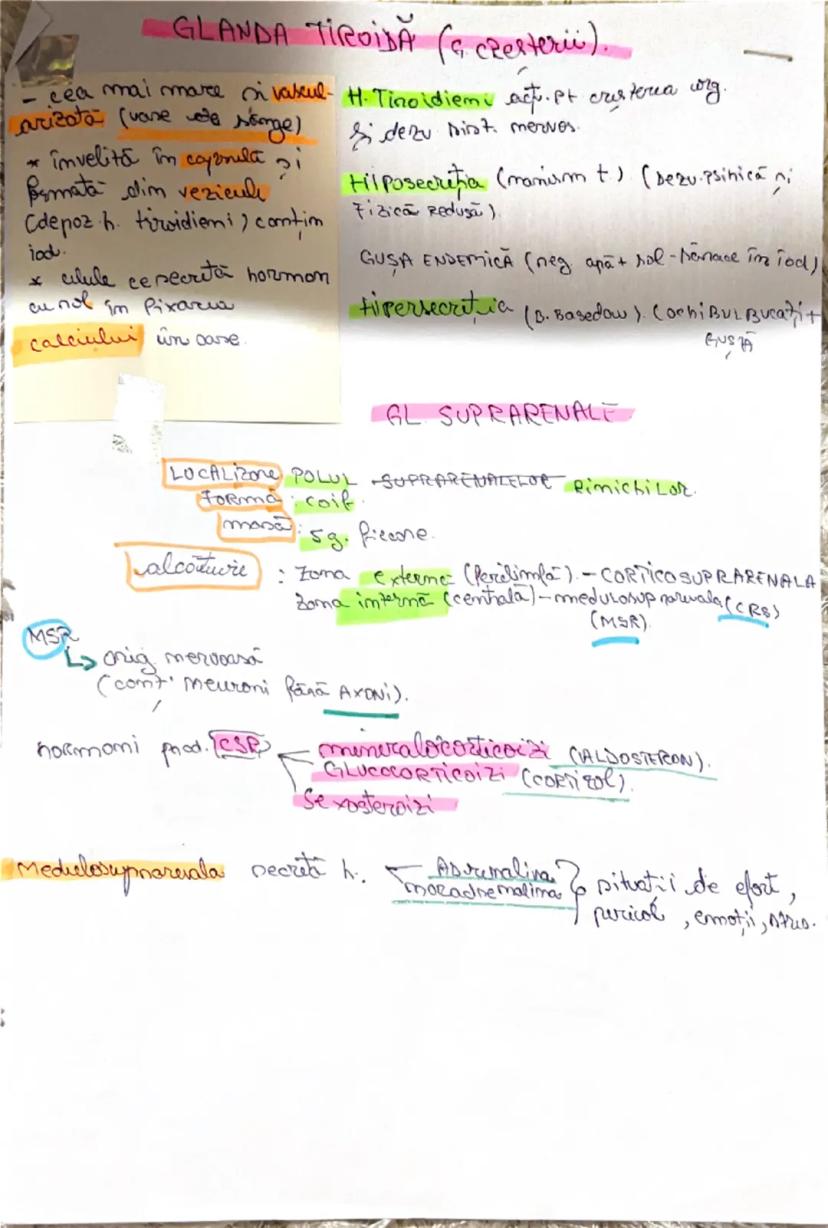 GLANDA TIROIDĂ (G. creșterii).
- cea mai mare și vascul-
arizată (vase de sânge)
* învelită în capsulă și
formată din vezicule
(depoz. h. tiroidieni) conțin
iod.
* celule ce secretă hormon
cu rol în fixarea
calciului în oase.
H. Tiroidieni acț. pt creșterea org.
și dezv sist. nervos.
Hiposecreția (nanism t) (Dezv. psihică și
fizică redusă).
GUȘA ENDEMICĂ (reg apă + sol - sărace în iod)
Hipersecreția (B. Basedow). (ochi BULBUCAȚI +
GUȘĂ
GL. SUPRARENALE
LOCALIZARE POLUL SUPRARENALELOR Rinichilor.
Formă : coif.
masă : 5g. fiecare.
alcătuire : Zona externă (Perilimfă). - CORTICOSUPRARENALA
Zona internă (centrală) - medulosuprarenala (CRS)
(MSR).
MSR
orig nervoasă
(conț neuroni fără AXONI).
hormoni prod. CSR
mineralocorticoizi (ALDOSTERON).
GLUCOCORTICOIZI (CORTIZOL).
Sexosteroizi
Medulosuprarenala secretă h.
Adrenalina
noradrenalina
situații de efort,
pericol, emoții, stres.